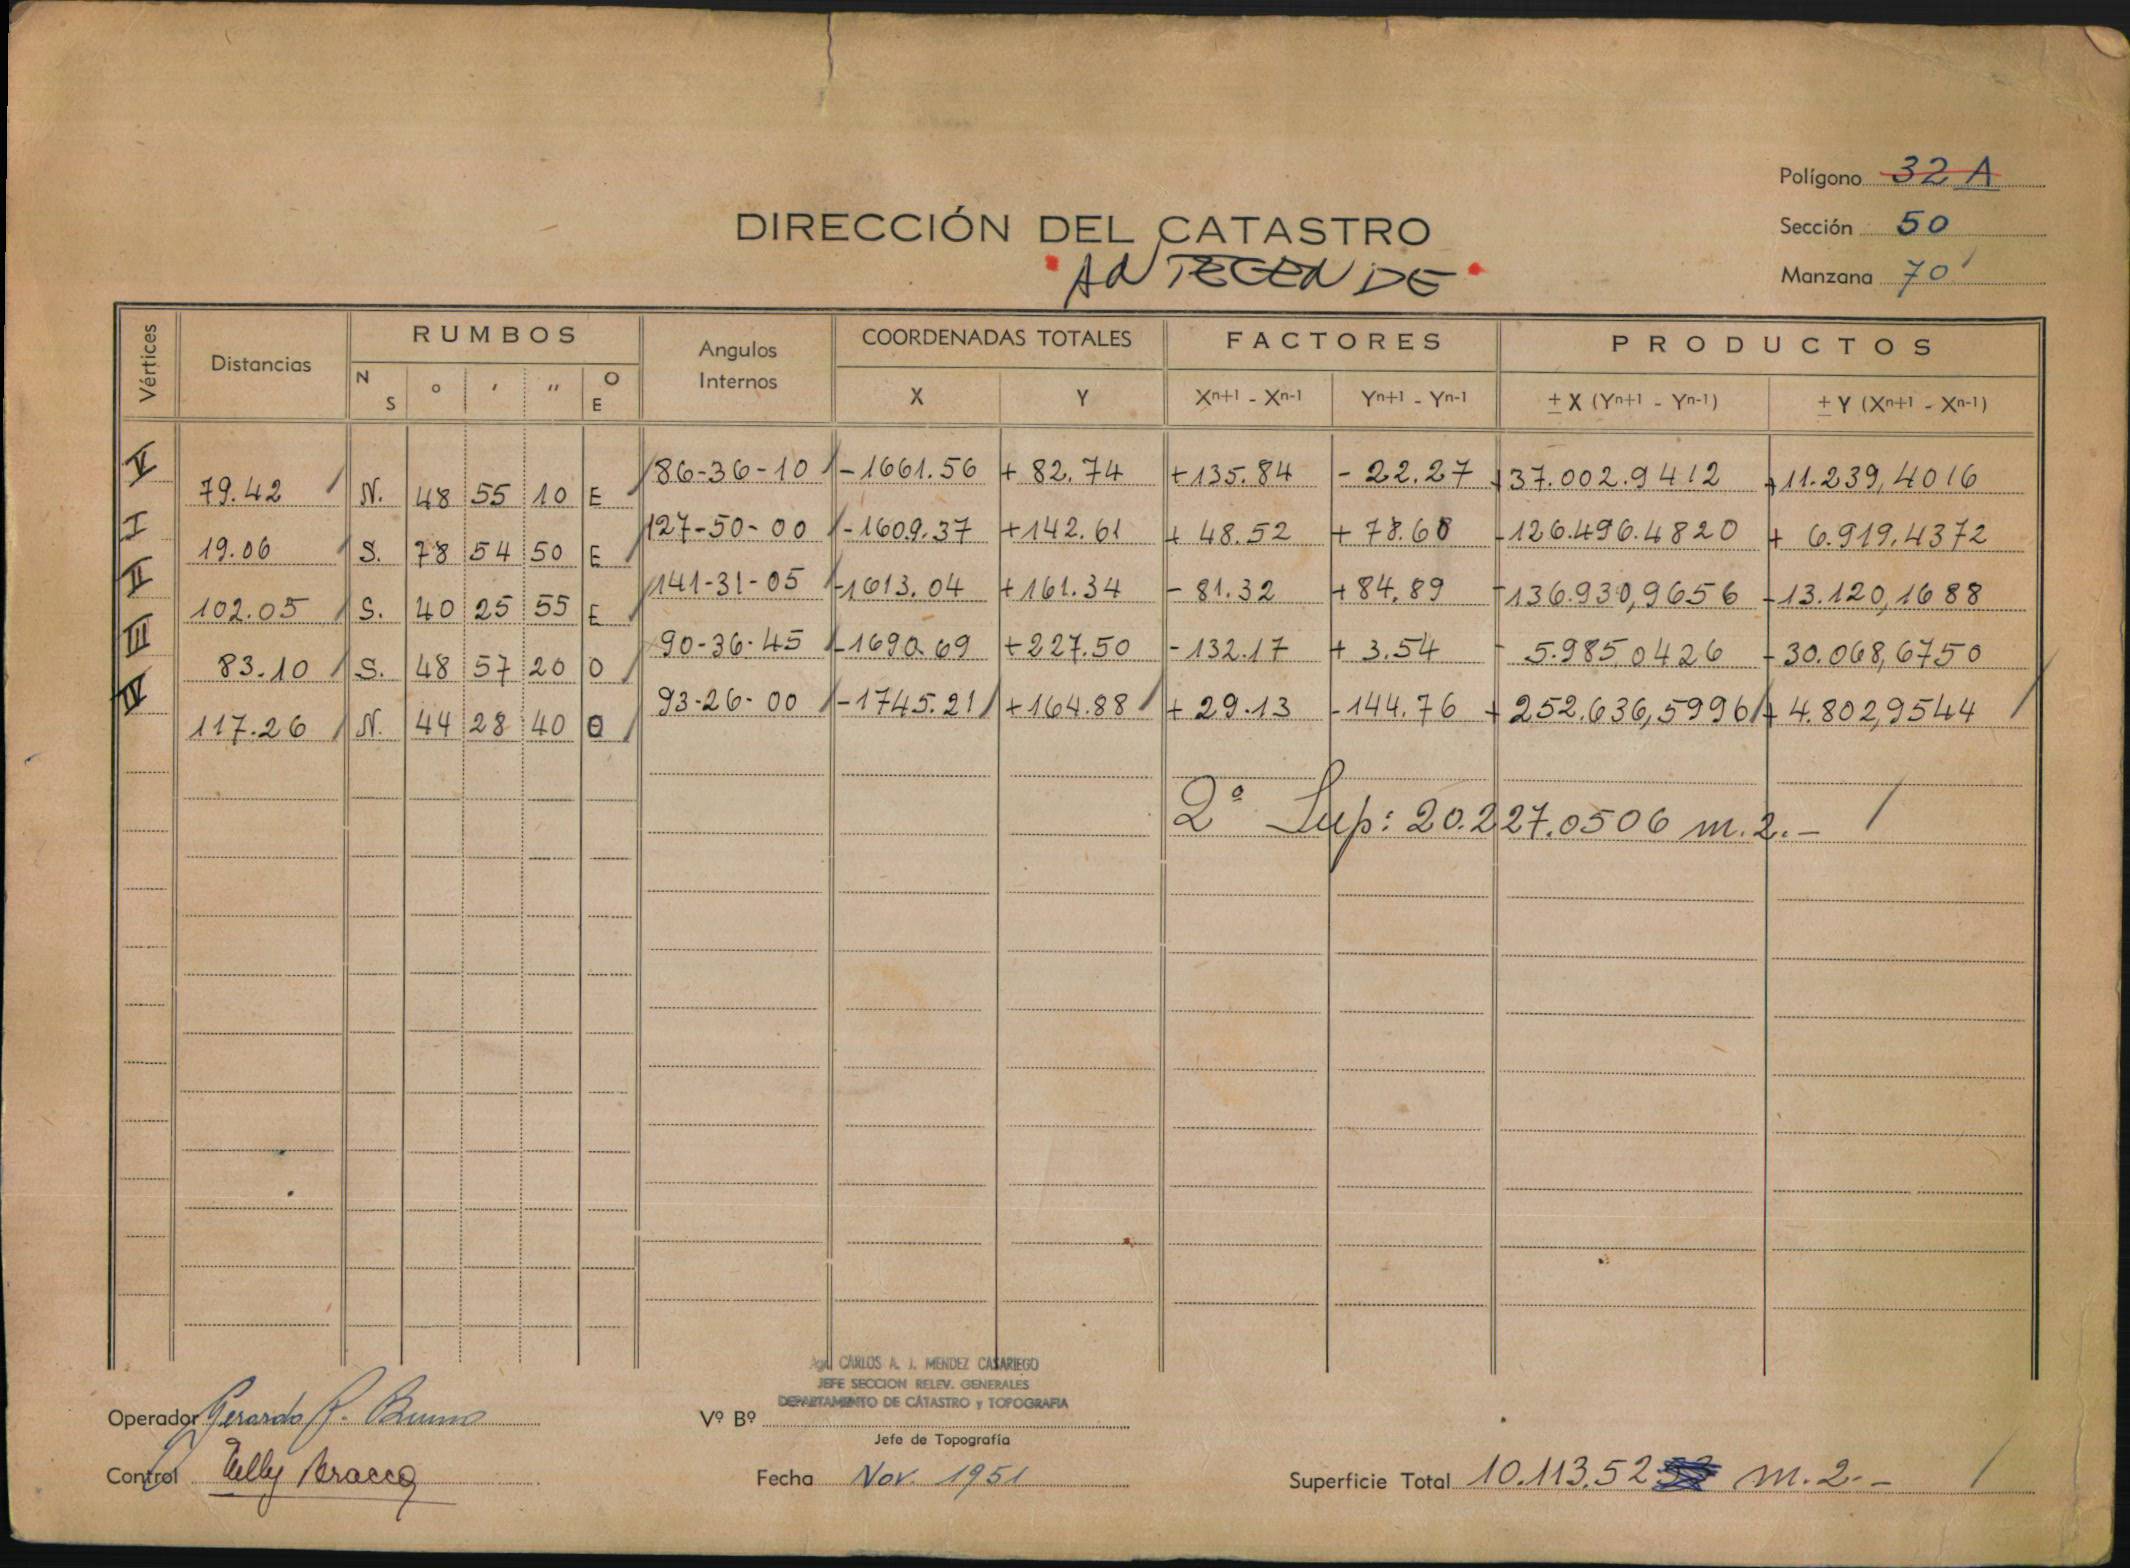 Polígono 32 A
DIRECCIÓN DEL CATASTRO
Sección 50
ANTECENDE
Manzana 70'
Vértices Distancias RUMBOS Angulos Internos COORDENADAS TOTALES FACTORES PRODUCTOS
N S o ' '' O E X Y Xn+1 - Xn-1 Yn+1 - Yn-1 ± X (Yn+1 - Yn-1) ± Y (Xn+1 - Xn-1)
V 79.42 N. 48 55 10 E 86-36-10 -1661.56 + 82.74 +135.84 - 22.27 +37.002.9412 +11.239,4016
I 19.06 S. 78 54 50 E 127-50-00 -1609.37 +142.61 + 48.52 + 78.60 -126.496.4820 + 6.919.4372
II 102.05 S. 40 25 55 E 141-31-05 -1613.04 +161.34 - 81.32 +84.89 -136.930,9656 -13.120,1688
III 83.10 S. 48 57 20 O 90-36-45 -1690.69 +227.50 -132.17 + 3.54 - 5.985.0426 -30.068,6750
IV 117.26 N. 44 28 40 O 93-26-00 -1745.21 +164.88 + 29.13 -144.76 +252.636,5996 + 4.802,9544
2ª Sup: 20.227.0506 m.2.-
Agr. CARLOS A. J. MENDEZ CASARIEGO
JEFE SECCION RELEV. GENERALES
DEPARTAMENTO DE CATASTRO y TOPOGRAFIA
Operador Gerardo Bruno
Vº Bº
Jefe de Topografía
Control Nelly Bracco
Fecha Nov. 1951
Superficie Total 10.113.52 m.2.-